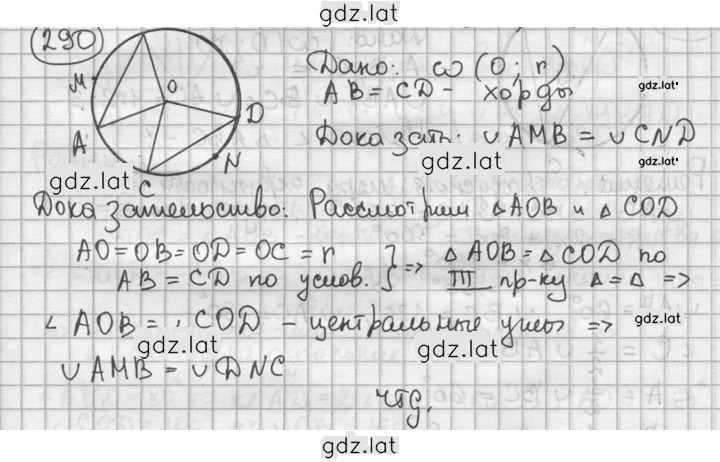 gdz.lat
290
Дано: ω (O; r)
AB = CD - хорды
gdz.lat
M
O
D
A
N
C
Доказать: ∪ AMB = ∪ CND
gdz.lat
gdz.lat
Доказательство: Рассмотрим △AOB и △ COD
AO = OB = OD = OC = r } => △ AOB = △ COD по
AB = CD по услов. III пр-ку △ = △ =>
∠ AOB = ∠ COD - центральные углы =>
gdz.lat
gdz.lat
gdz.lat
∪ AMB = ∪ DNC
чтд.
gdz.lat